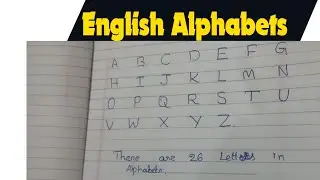 English Alphabets
A B C D E F G
H I J K L M N
O P Q R S T U
V W X Y Z
There are 26 Letters in
Alphabets.